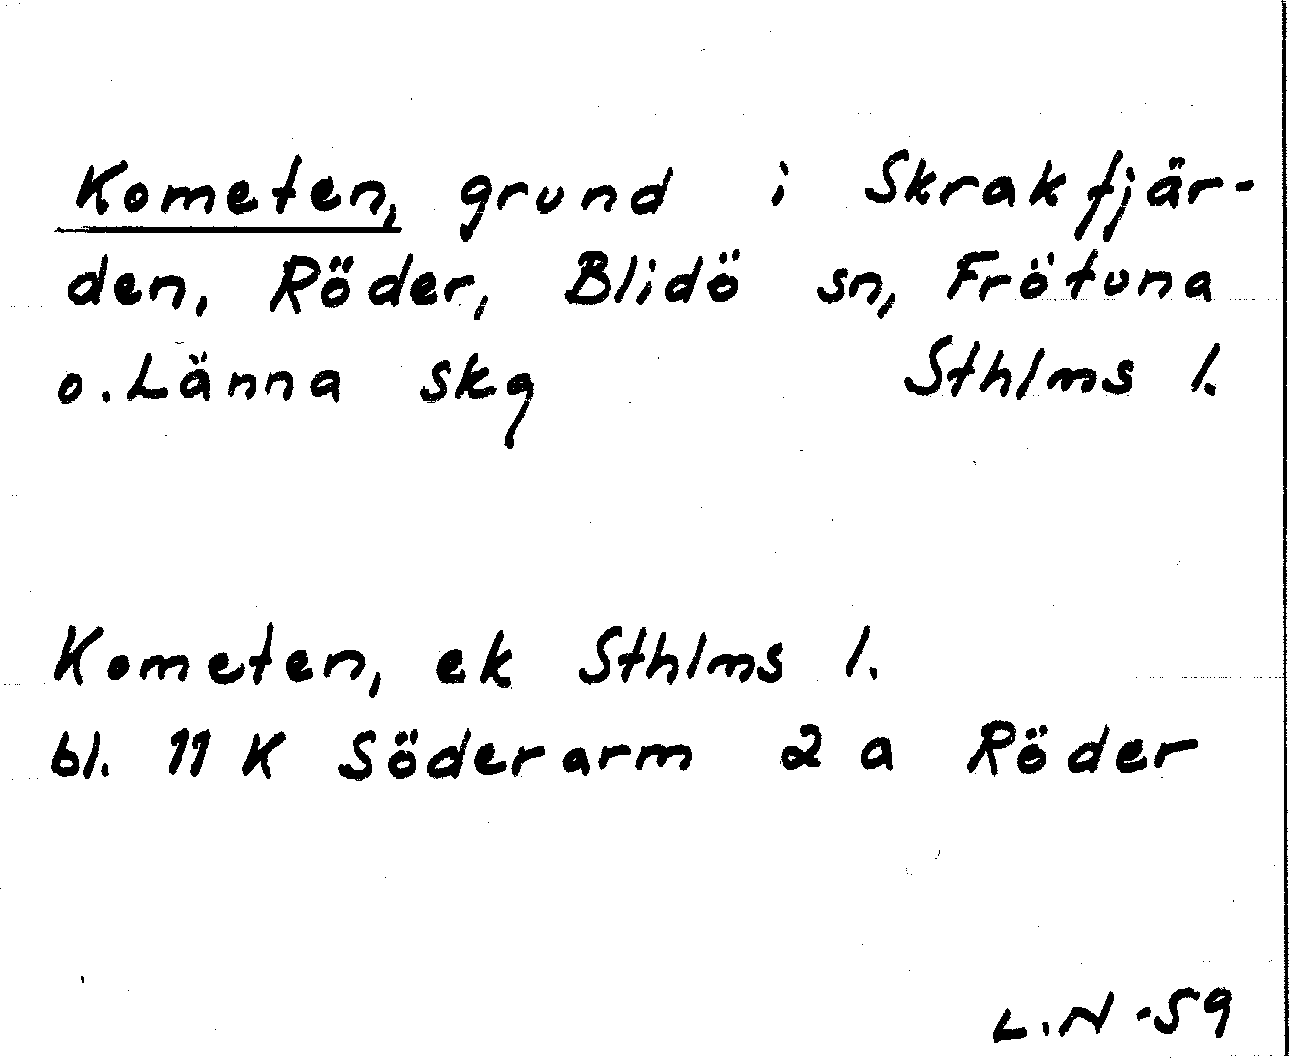 Kometen, grund i Skrakfjär-
den, Röder, Blidö sn, Frötuna
o. Länna skg Sthlms l.
Kometen, ek Sthlms l.
bl. 11 K Söderarm 2 a Röder
L.N -59